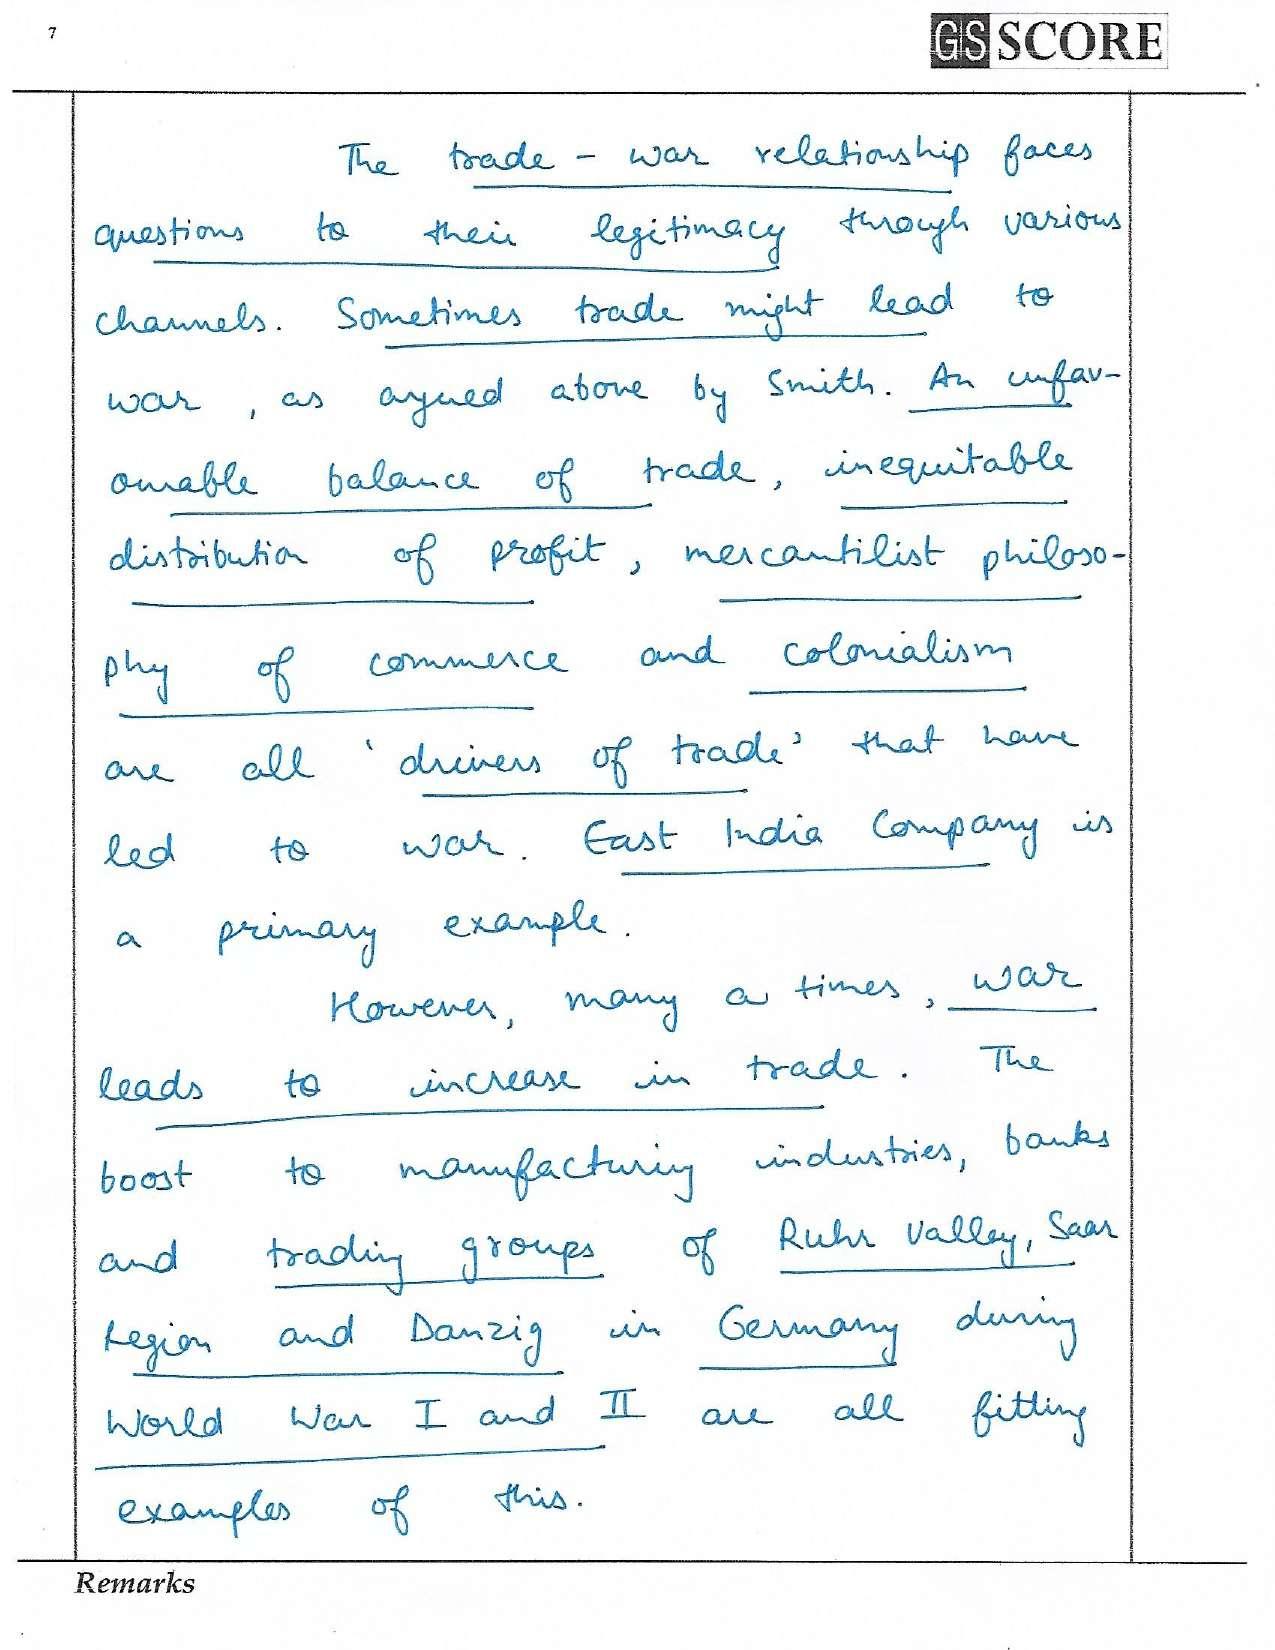 7
GS SCORE
The trade - war relationship faces
questions to their legitimacy through various
channels. Sometimes trade might lead to
war, as argued above by Smith. An unfav-
ourable balance of trade, inequitable
distribution of profit, mercantilist philoso-
phy of commerce and colonialism
are all 'drivers of trade' that have
led to war. East India Company is
a primary example.
However, many a times, war
leads to increase in trade. The
boost to manufacturing industries, banks
and trading groups of Ruhr Valley, Saar
Region and Danzig in Germany during
World War I and II are all fitting
examples of this.
Remarks